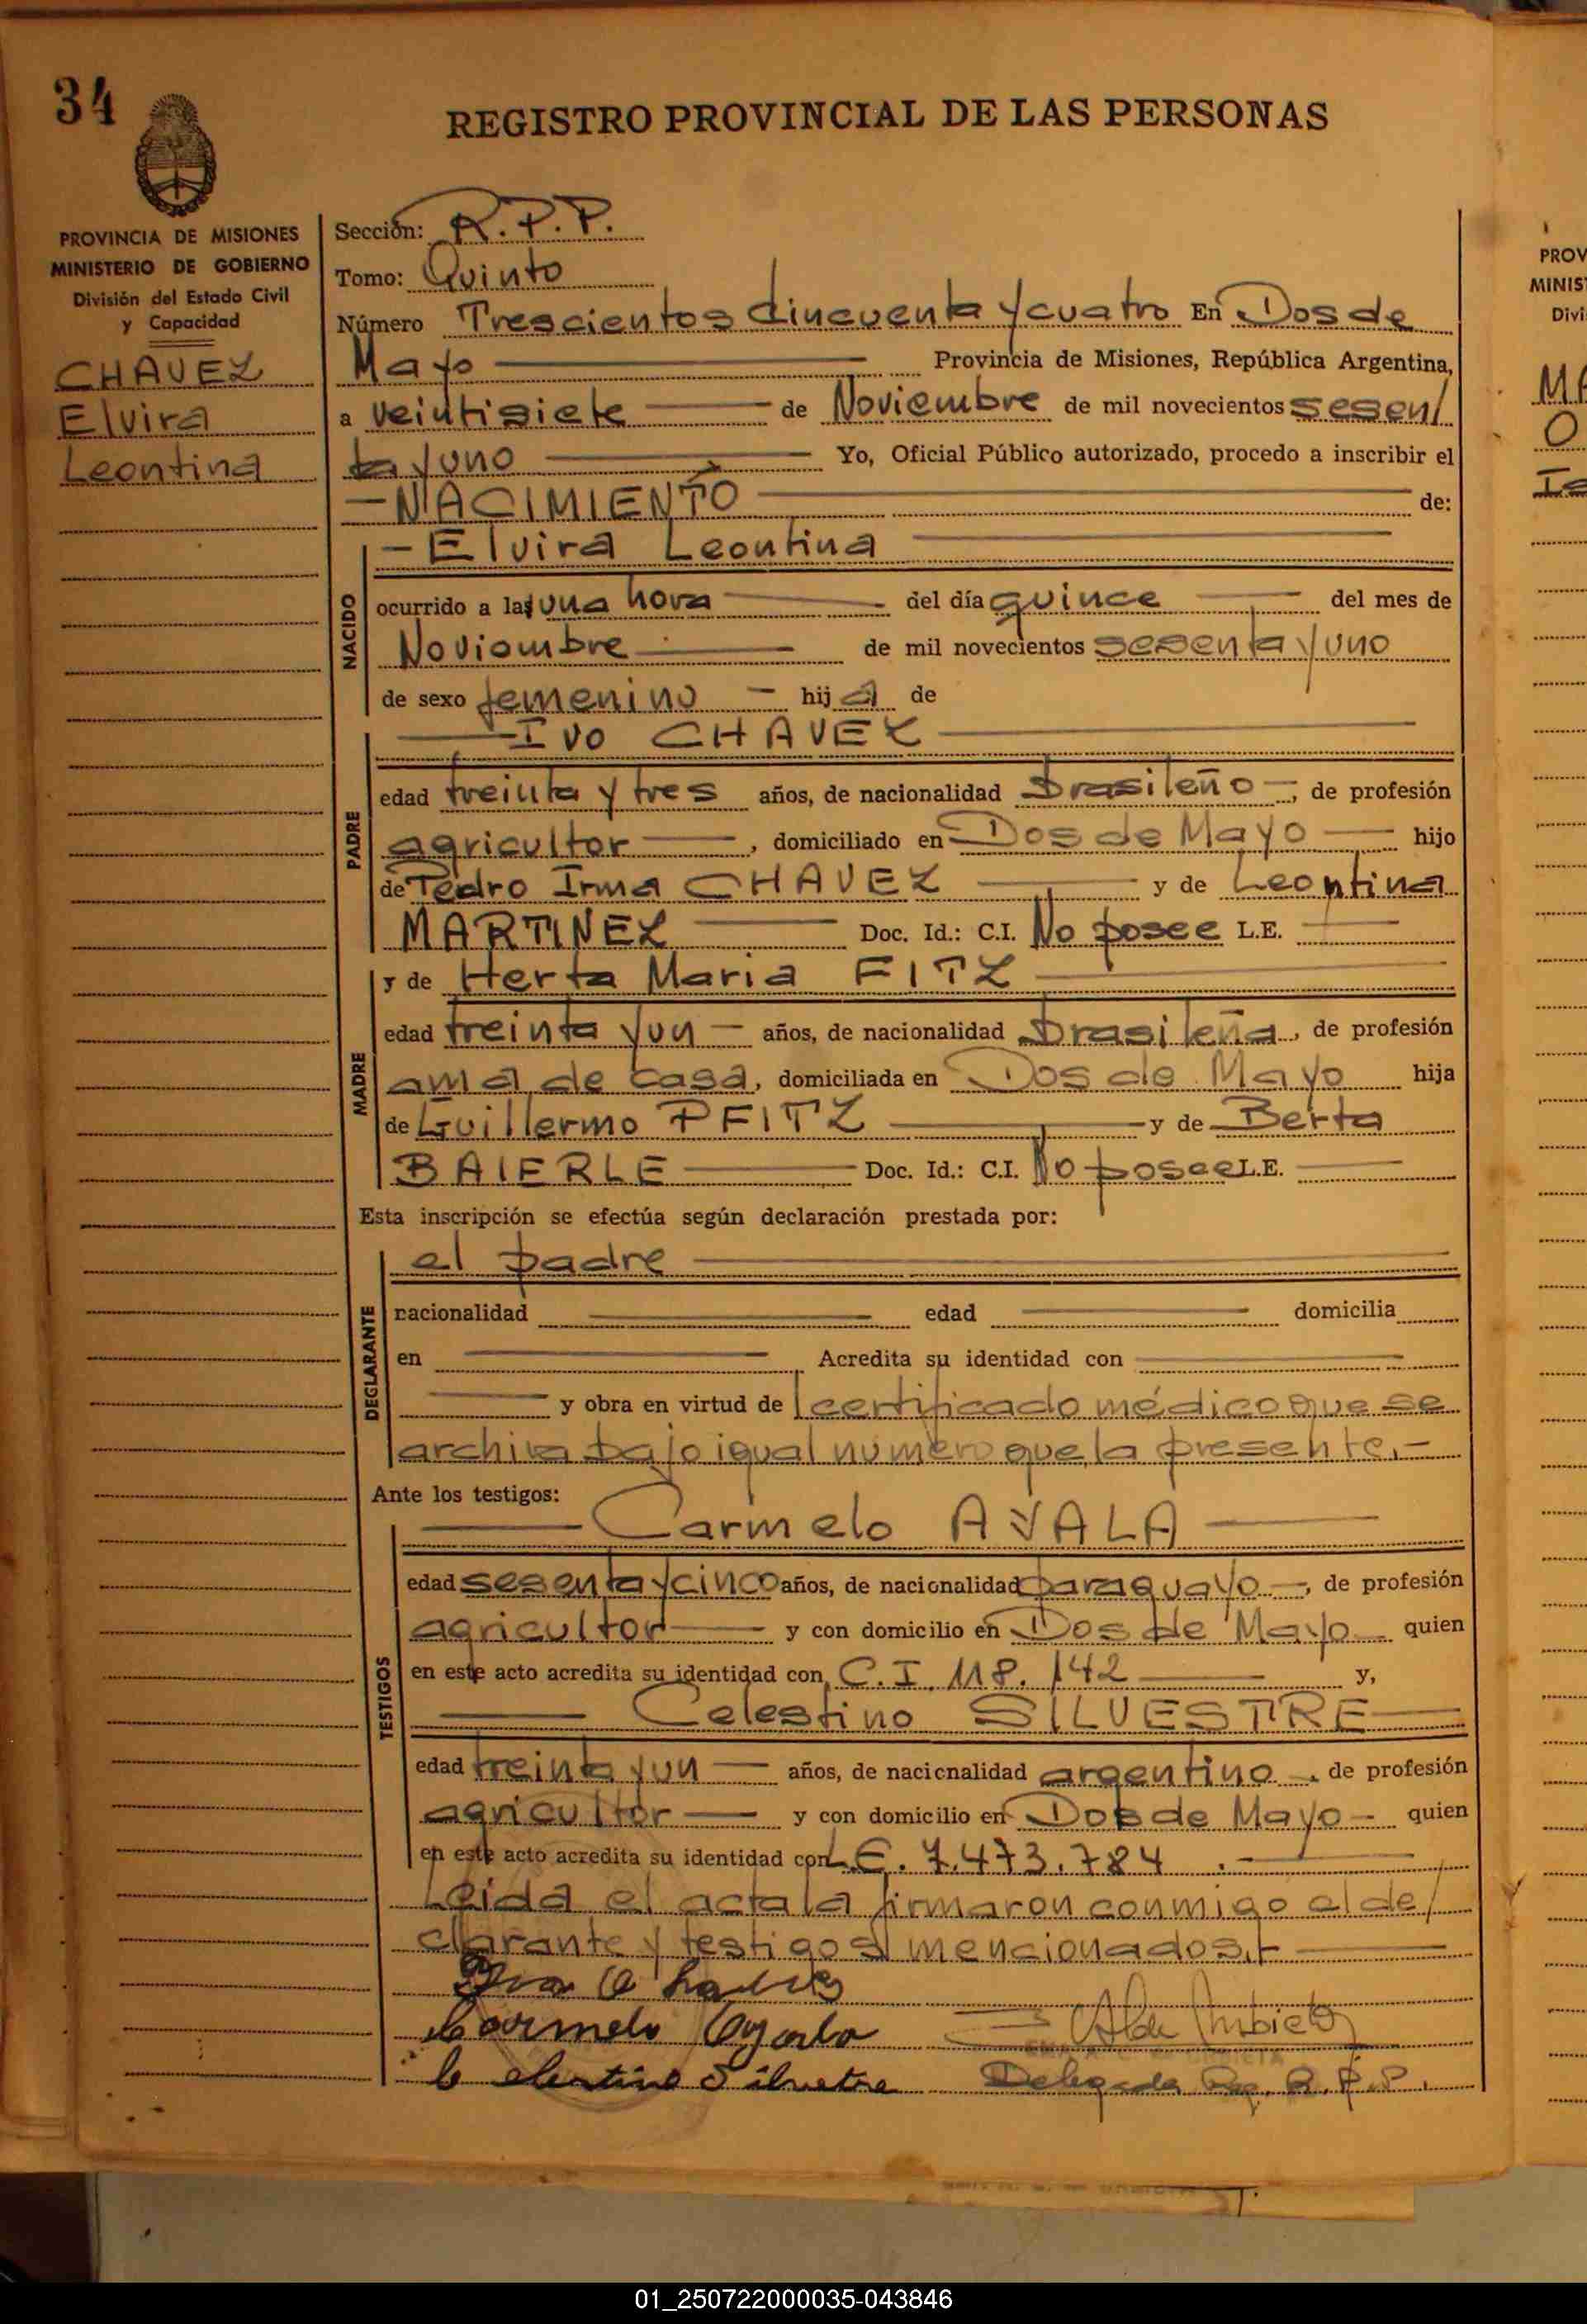 34
REGISTRO PROVINCIAL DE LAS PERSONAS
PROVINCIA DE MISIONES
MINISTERIO DE GOBIERNO
División del Estado Civil
y Capacidad
CHAVEZ
Elvira
Leontina
Sección: R.P.P.
Tomo: Quinto
Número Trescientos cincuenta y cuatro En Dos de
Mayo Provincia de Misiones, República Argentina,
a veintisiete de Noviembre de mil novecientos sesen/
ta y uno Yo, Oficial Público autorizado, procedo a inscribir el
- NACIMIENTO de:
NACIDO
- Elvira Leontina
ocurrido a las una hora del día quince del mes de
Noviembre de mil novecientos sesenta y uno
de sexo femenino - hija de
PADRE
Ivo CHAVEZ
edad treinta y tres años, de nacionalidad brasileño -, de profesión
agricultor, domiciliado en Dos de Mayo hijo
de Pedro Irma CHAVEZ y de Leontina
MARTINEZ Doc. Id.: C.I. No posee L.E.
MADRE
y de Herta Maria FITZ
edad treinta y un - años, de nacionalidad brasileña, de profesión
ama de casa, domiciliada en Dos de Mayo hija
de Guillermo PFITZ y de Berta
BAIERLE Doc. Id.: C.I. No posee L.E.
Esta inscripción se efectúa según declaración prestada por:
DECLARANTE
el padre
nacionalidad edad domicilia
en Acredita su identidad con
y obra en virtud de certificado médico que se
archiva bajo igual número que la presente.-
Ante los testigos:
TESTIGOS
Carmelo AYALA
edad sesenta y cinco años, de nacionalidad paraguayo -, de profesión
agricultor y con domicilio en Dos de Mayo quien
en este acto acredita su identidad con C.I. 118.142 y,
Celestino SILVESTRE
edad treinta y un años, de nacionalidad argentino, de profesión
agricultor y con domicilio en Dos de Mayo - quien
en este acto acredita su identidad con L.E. 7.473.784 .-
Leida el acta la firmaron conmigo el de/
clarante y testigos mencionados.-
Ivo Chaves
Carmelo Ayala
Celestino Silvetre
Delegada R.P.P.
PROV
MINIS
Divi
01_250722000035-043846